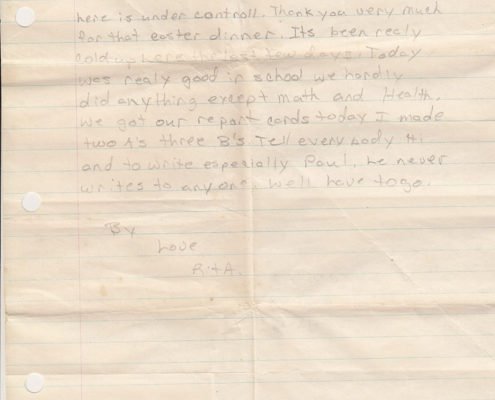 here is under controll. Thank you very much
for that easter dinner. Its been realy
cold up here the last few days. Today
was realy good in school we hardly
did anything except math and Health.
We got our report cards today I made
two A's three B's Tell every body Hi
and to write especially Paul, he never
writes to anyone. Well have to go.
By
Love
R + A.